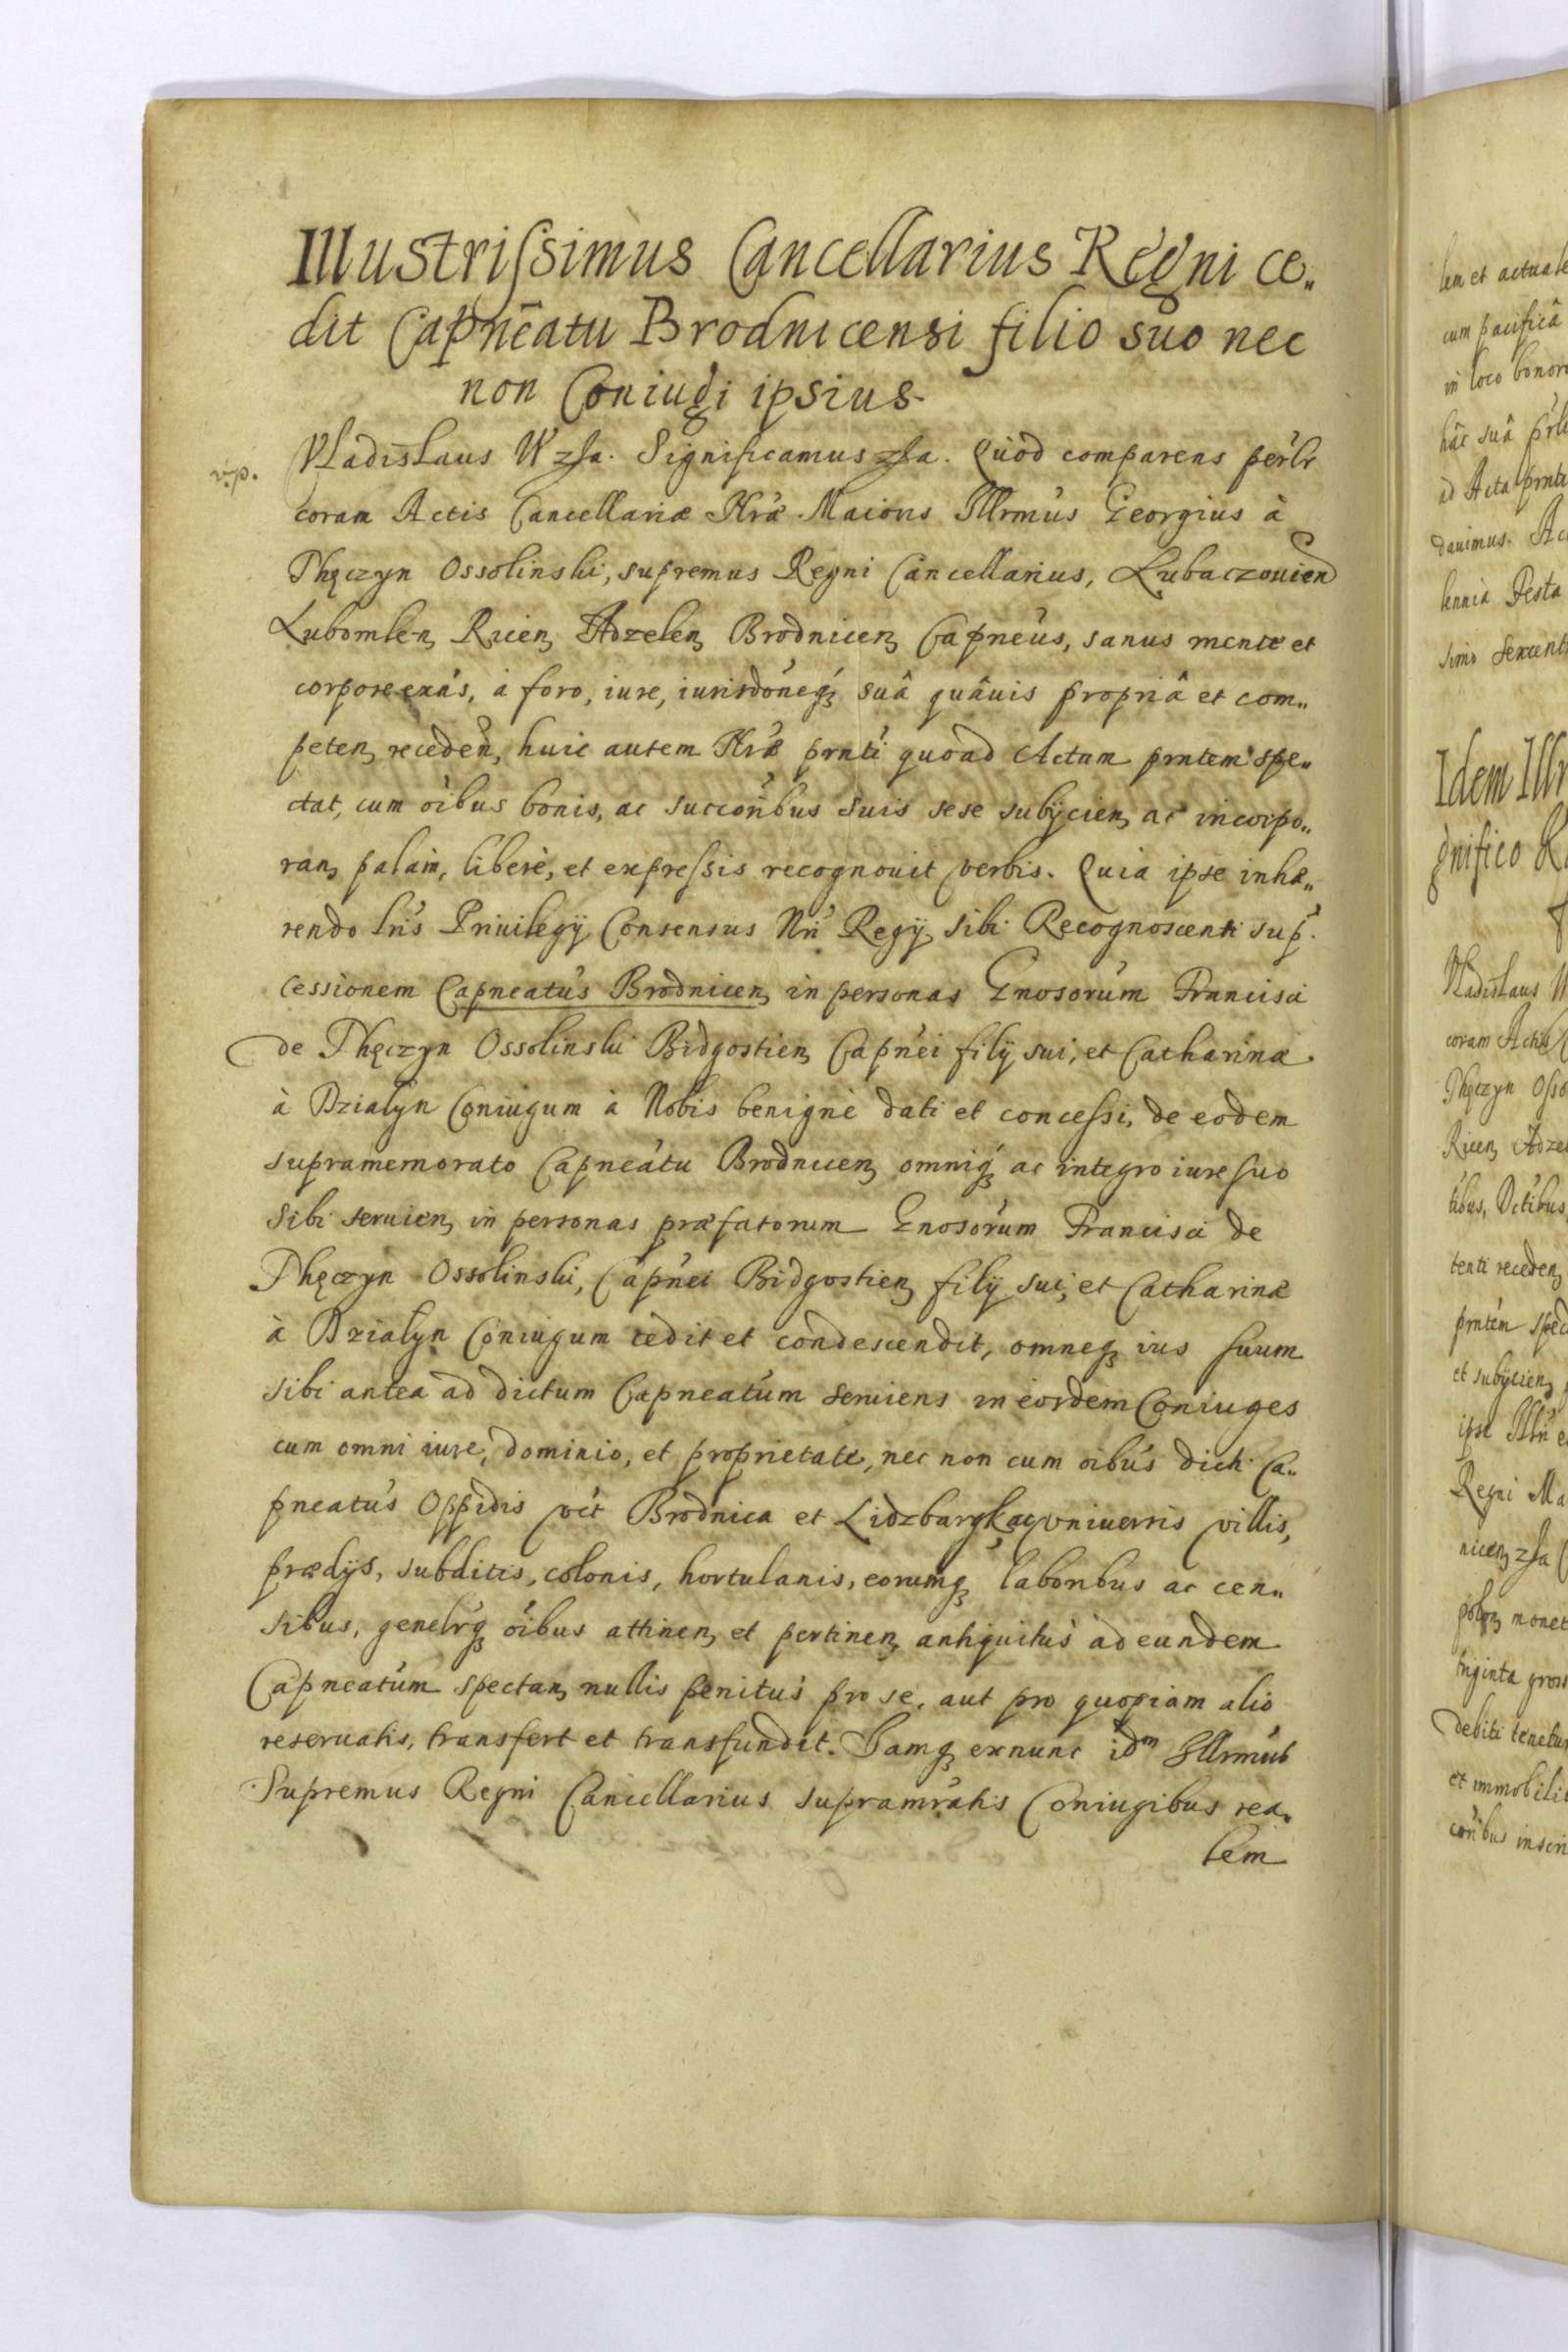 Illustrissimus Cancellarius Regni ce„
dit Capnēatu Brodnicensi filio suo nec
non Coniugi ipsius.
v.p.
Vladislaus IV zła. Significamus zła. Quod comparens perlr
coram Actis Cancellariæ Nræ Maioris Illrmus Georgius à
Thęczyn Ossolinski, supremus Regni Cancellarius, Lubaczouien
Lubomlen, Ricen, Adzelen, Brodnicen, Capneus, sanus mente et
corpore exns, a foro, iure, iurisdoneq, suâ quâuis propriâ et com„
peten, receden, huic autem Nræ prnti quoad Actum prntem spe„
ctat, cum oibus bonis, ac succonbus suis sese subijcien, ac incorpo„
ran, palam, liberè, et expressis recognouit verbis. Quia ipse inhæ„
rendo lris Priuilegij Consensus Nri Regij, sibi Recognoscenti sup.
cessionem Capneatus Brodnicen, in personas Gnosorum Francisci
de Thęczyn Ossolinski Bidgostien, Capnei filij sui, et Catharinæ
à Dzialyn Coniugum à Nobis benignè dati et concessi, de eodem
supramemorato Capneatu Brodnicen, omniq, ac integro iure suo
sibi seruien, in personas præfatorum Gnosorum Francisci de
Thęczyn Ossolinski, Capnei Bidgostien, filij sui, et Catharinæ
à Dzialyn Coniugum cedit et condescendit, omneq, ius suum
sibi antea ad dictum Capneatum seruiens in eosdem Coniuges
cum omni iure, dominio, et proprietate, nec non cum oibus dicti Ca„
pneatus Oppidis vct Brodnica et Lidzbargk, ac vniuersis villis,
prædijs, subditis, colonis, hortulanis, eorumq, laboribus ac cen„
sibus, genelrq, oibus attinen, et pertinen, antiquitus ad eundem
Capneatum spectan, nullis penitus pro se, aut pro quopiam alio
reseruatis, transfert et transfundit. Iamq, exnunc idm Illrmus
Supremus Regni Cancellarius supramratis Coniugibus rea„
lem
len et actuale
cum pacificâ
in loco bonor
hâc suâ
ad Acta prnte
dauimus. Ac
lennia Festa
simo sexcent
Idem Illr
gnifico
Vladislaus
coram Actis
Thęczyn Osso
Ricen, Adze
tibus,
tenti receden,
prntem spec
et subijcien,
ipse
Regni Ma
nicen, zła
polon, monet
triginta gros
debiti tenetur
et immobili
conbus inscri